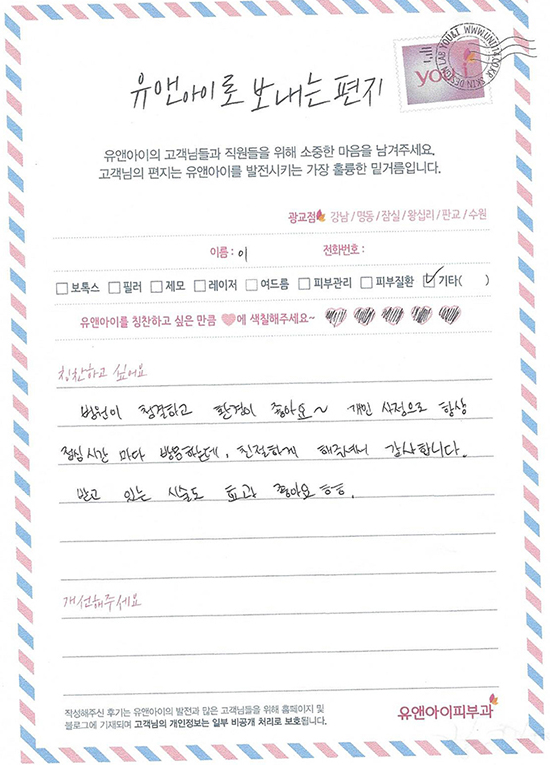 SKIN DESIGN LAB YOU&I WWW.UNI114.CO.KR
you
유앤아이로 보내는 편지
유앤아이의 고객님들과 직원들을 위해 소중한 마음을 남겨주세요.
고객님의 편지는 유앤아이를 발전시키는 가장 훌륭한 밑거름입니다.
광교점 강남 / 명동 / 잠실 / 왕십리 / 판교 / 수원
이름 : 이 전화번호 :
보톡스 필러 제모 레이저 여드름 피부관리 피부질환 기타( )
유앤아이를 칭찬하고 싶은 만큼 에 색칠해주세요~
칭찬하고 싶어요
병원이 청결하고 환경이 좋아요~ 개인 사정으로 항상
점심시간 마다 방문하는데, 친절하게 해주셔서 감사합니다.
받고 있는 시술도 효과 좋아요 ㅎㅎ.
개선해주세요
작성해주신 후기는 유앤아이의 발전과 많은 고객님들을 위해 홈페이지 및
블로그에 기재되며 고객님의 개인정보는 일부 비공개 처리로 보호됩니다.
유앤아이피부과